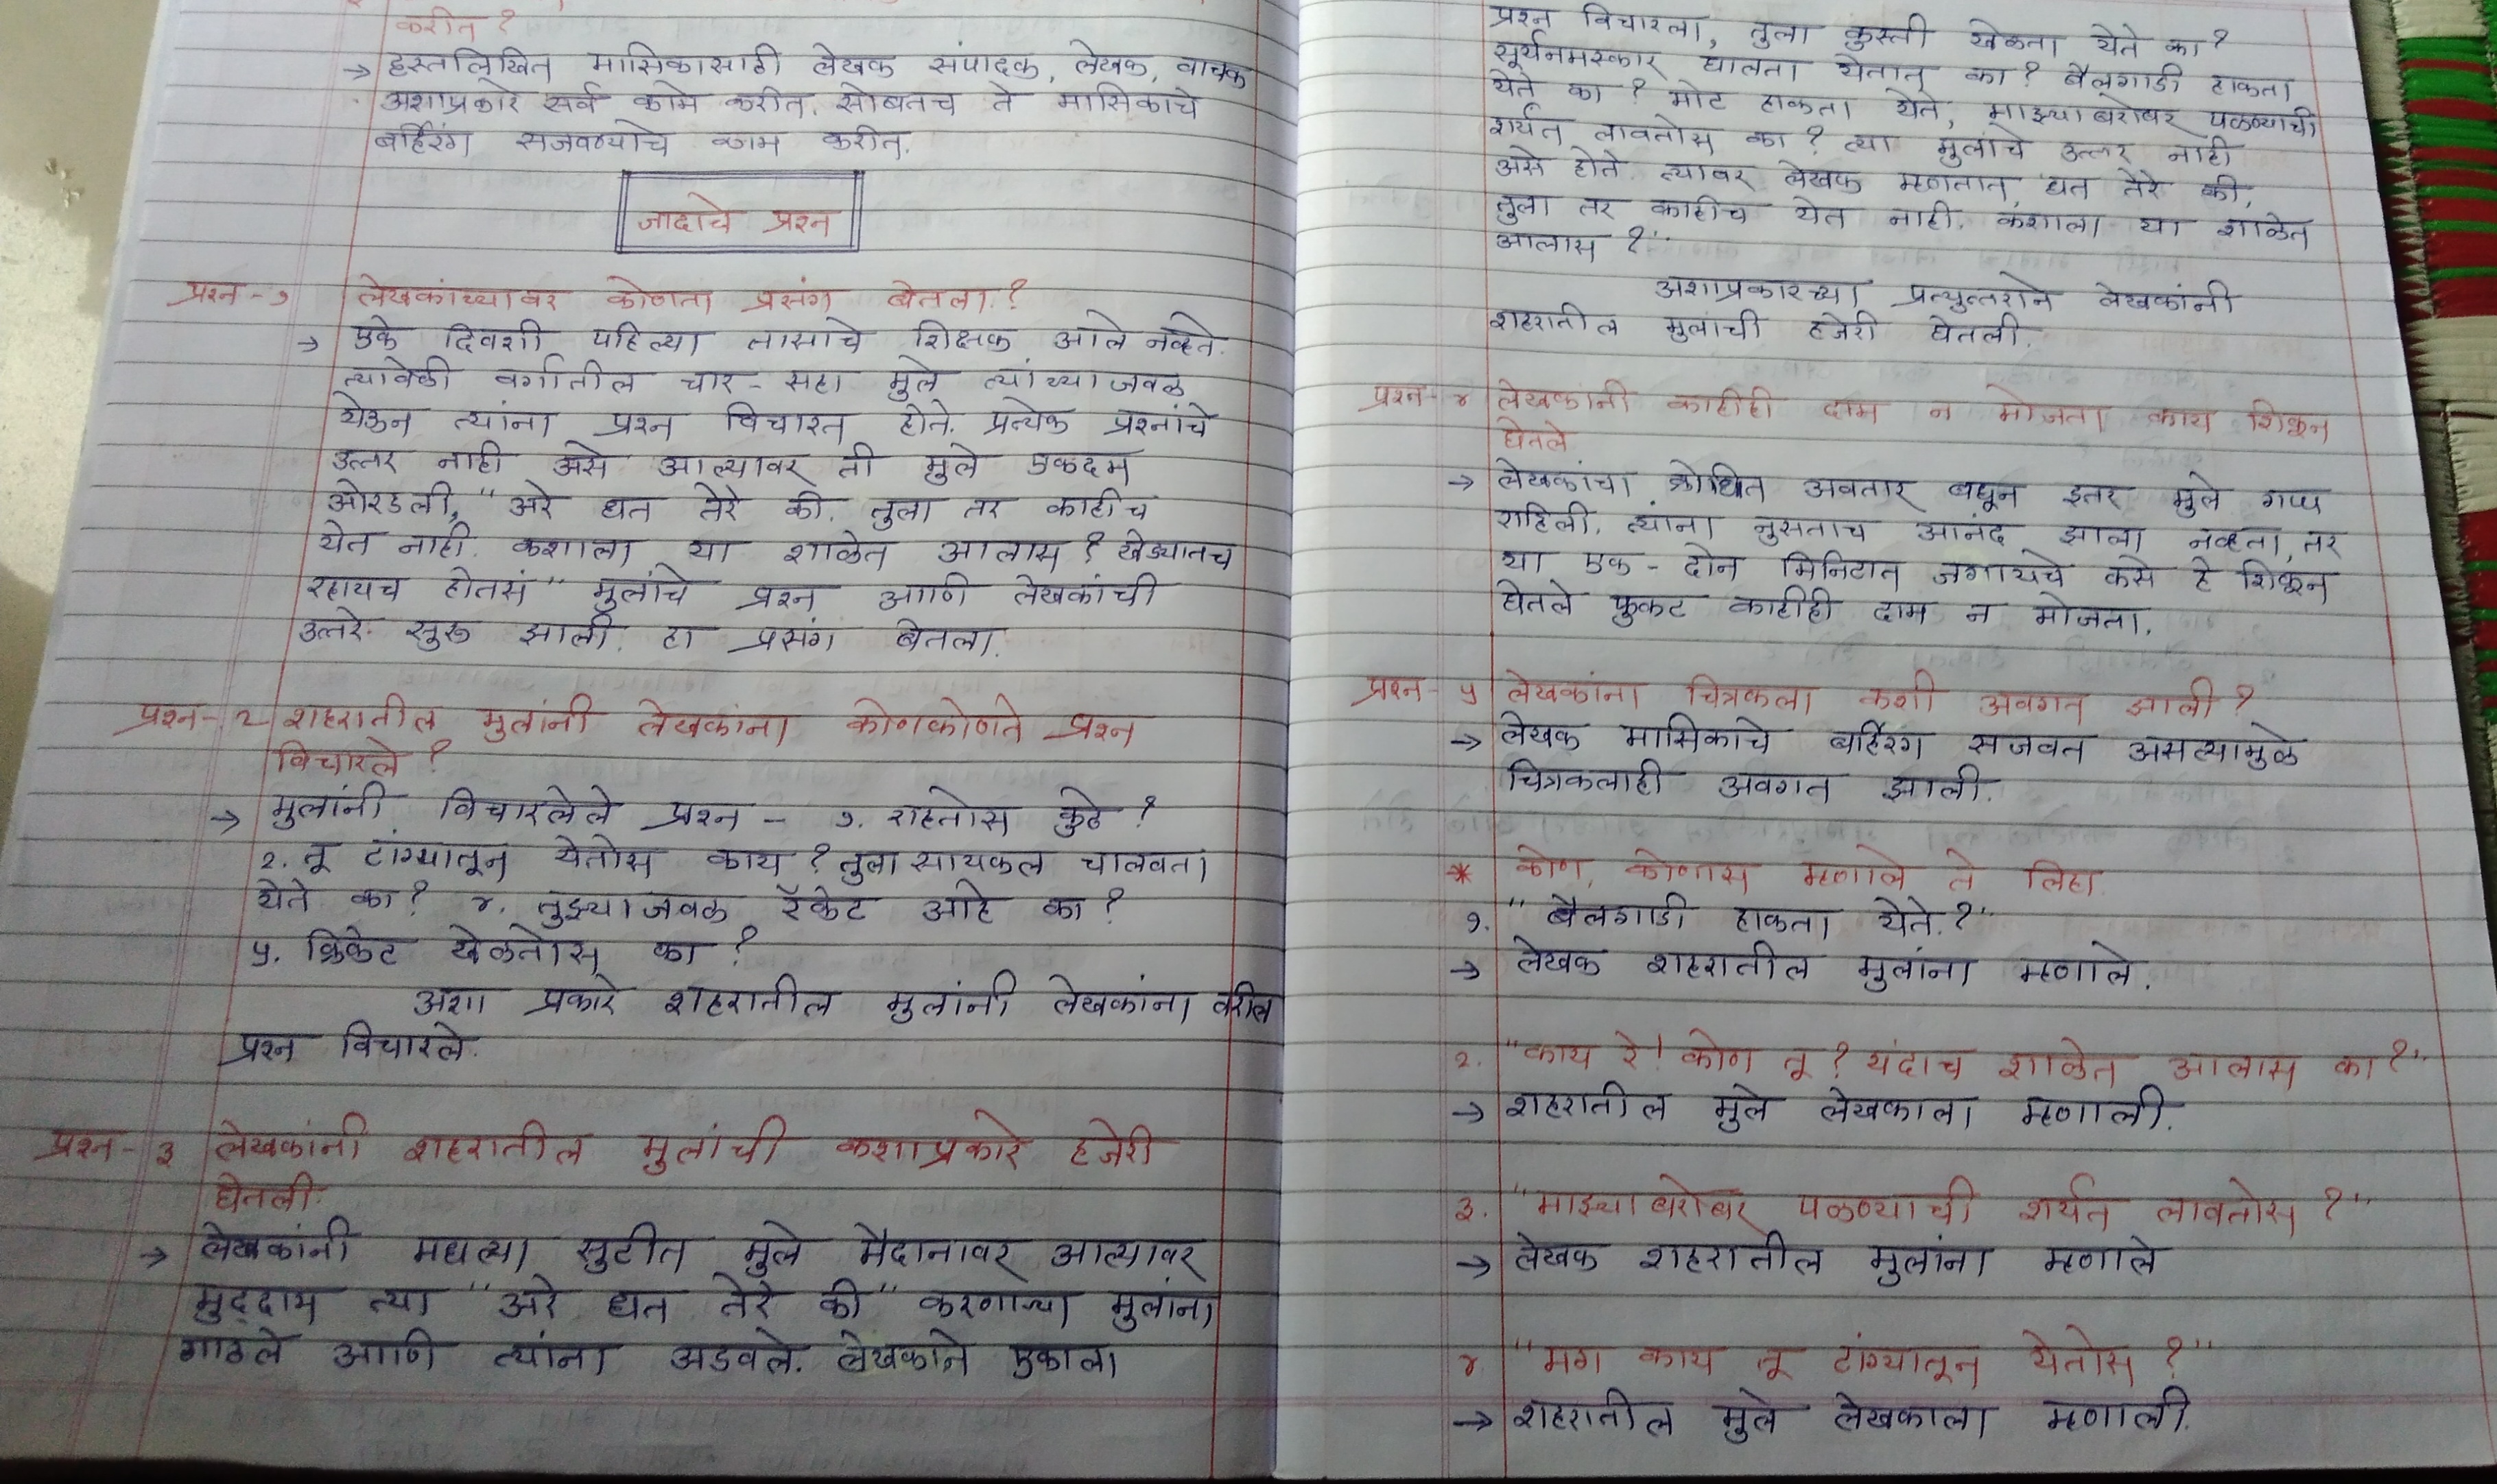 करीत ?
→ हस्तलिखित मासिकासाठी लेखक संपादक, लेखक, वाचक
अशाप्रकारे सर्व कामे करीत. सोबतच ते मासिकाचे
बर्हिरंग सजवण्याचे काम करीत.
जादाचे प्रश्न
प्रश्न - १ लेखकांच्यावर कोणता प्रसंग बेतला.?
→ एके दिवशी पहिल्या तासाचे शिक्षक आले नव्हते.
त्यावेळी वर्गातील चार - सहा मुले त्यांच्याजवळ
येऊन त्यांना प्रश्न विचारत होते. प्रत्येक प्रश्नांचे
उत्तर नाही असे आल्यावर ती मुले एकदम
ओरडली, "अरे धत तेरे की. तुला तर काहीच
येत नाही. कशाला या शाळेत आलास ? खेड्यातच
रहायच होतसं" मुलांचे प्रश्न आणि लेखकांची
उत्तरे सुरू झाली. हा प्रसंग बेतला.
प्रश्न - २ शहरातील मुलांनी लेखकांना कोणकोणते प्रश्न
विचारले ?
→ मुलांनी विचारलेले प्रश्न - १. राहतोस कुठे ?
२. तू टांग्यातून येतोस काय ? तुला सायकल चालवता
येते का ? ४. तुझ्याजवळ रॅकेट आहे का ?
५. क्रिकेट खेळतोस का ?
अशा प्रकारे शहरातील मुलांनी लेखकांना वरील
प्रश्न विचारले.
प्रश्न - ३ लेखकांनी शहरातील मुलांची कशाप्रकारे हजेरी
घेतली.
→ लेखकांनी मधल्या सुटीत मुले मैदानावर आल्यावर
मुद्दाम त्या "अरे धत तेरे की" करणाऱ्या मुलांना
गाठले आणि त्यांना अडवले. लेखकाने एकाला
प्रश्न विचारला, तुला कुस्ती खेळता येते का ?
सूर्यनमस्कार घालता येतात का ? बैलगाडी हाकता
येते का ? मोट हाकता येते, माझ्याबरोबर पळण्याची
शर्यत लावतोस का ? त्या मुलांचे उत्तर नाही
असे होते. त्यावर लेखक म्हणतात, धत तेरे की,
तुला तर काहीच येत नाही. कशाला या शाळेत
आलास ?"
अशाप्रकारच्या प्रत्युत्तराने लेखकांनी
शहरातील मुलांची हजेरी घेतली.
प्रश्न - ४ लेखकांनी काहीही दाम न मोजता काय शिकून
घेतले
→ लेखकांचा क्रोधित अवतार बघून इतर मुले गप्प
राहिली. त्यांना नुसताच आनंद झाला नव्हता, तर
या एक - दोन मिनिटात जगायचे कसे हे शिकून
घेतले फुकट काहीही दाम न मोजता.
प्रश्न - ५ लेखकांना चित्रकला कशी अवगत झाली ?
→ लेखक मासिकाचे बर्हिरंग सजवत असल्यामुळे
चित्रकलाही अवगत झाली.
* कोण, कोणास म्हणाले ते लिहा.
१. "बैलगाडी हाकता येते.?"
→ लेखक शहरातील मुलांना म्हणाले.
२. "काय रे! कोण तू ? यंदाच शाळेत आलास का ?"
→ शहरातील मुले लेखकाला म्हणाली.
३. "माझ्याबरोबर पळण्याची शर्यत लावतोस ?"
→ लेखक शहरातील मुलांना म्हणाले
४ "मग काय तू टांग्यातून येतोस ?"
→ शहरातील मुले लेखकाला म्हणाली.